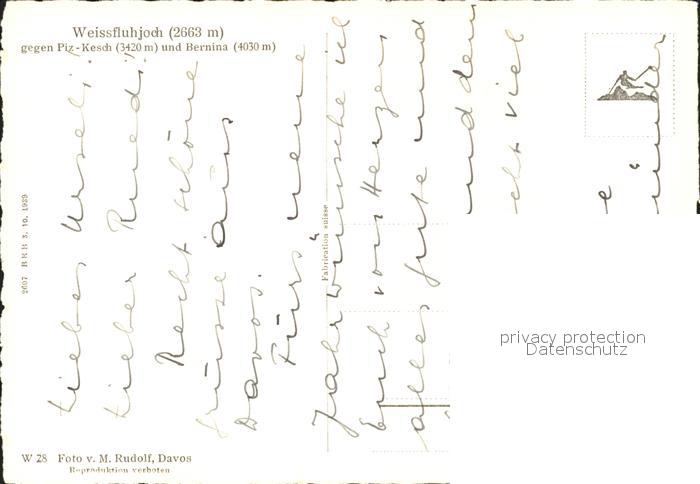 Weissfluhjoch (2663 m)
gegen Piz-Kesch (3420 m) und Bernina (4030 m)
Liebes Urseli!
Lieber Ruedi!
Recht schöne
Grüsse aus
Davos.
Fürs neue
Jahr wünsche ich
Euch von Herzen
alles gute und
und den
cht viel
e
Fabrication suisse
2607 BRB 3. 10. 1939
W 28 Foto v. M. Rudolf, Davos
Reproduktion verboten
privacy protection
Datenschutz